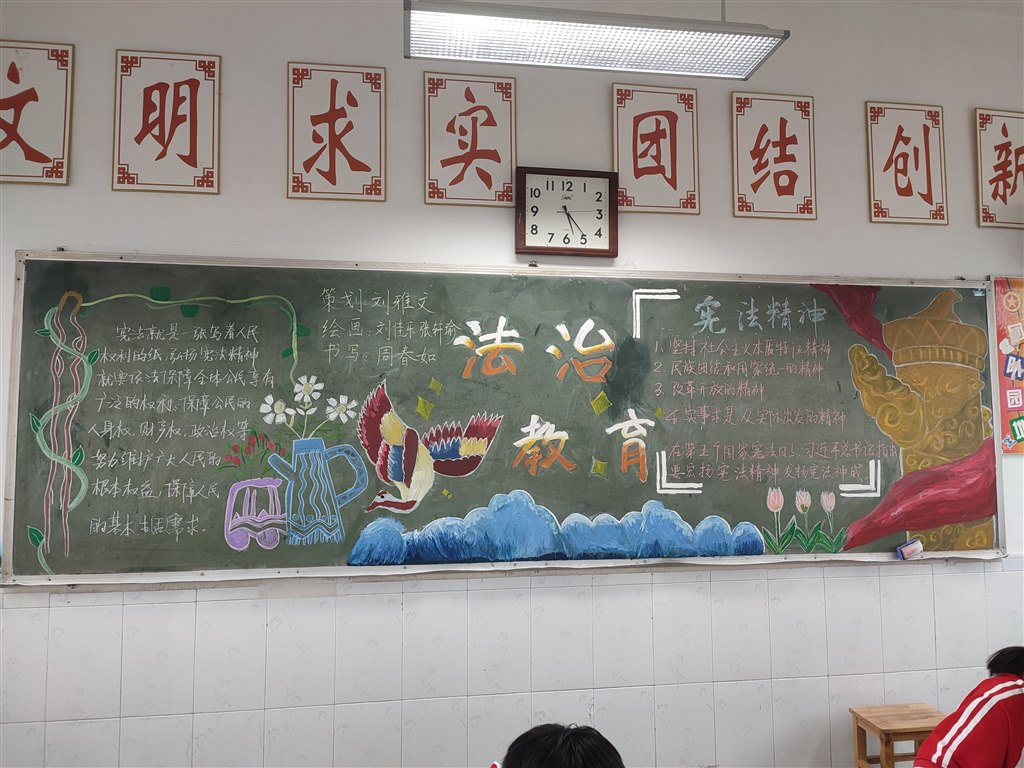 文 明 求 实 团 结 创 新
10 11 12 1 2
9 3
8 7 6 5 4
宪法就是一张写着人民
权利的纸,弘扬宪法精神
就要依法保障全体公民享有
广泛的权利、保障公民的
人身权、财产权、政治权等
努力维护广大人民的
根本权益,保障人民
的基本生活需求。
策划:刘雅文
绘画:刘佳乐 张轩瑜
书写:周春如
法治
教育
宪法精神
1. 坚持社会主义本质特征精神
2. 民族团结和国家统一的精神
3. 改革开放的精神
4. 实事求是及实际出发的精神
在第五个国家宪法日上,习近平总书记指出
要宏扬宪法精神发扬宪法神威
园